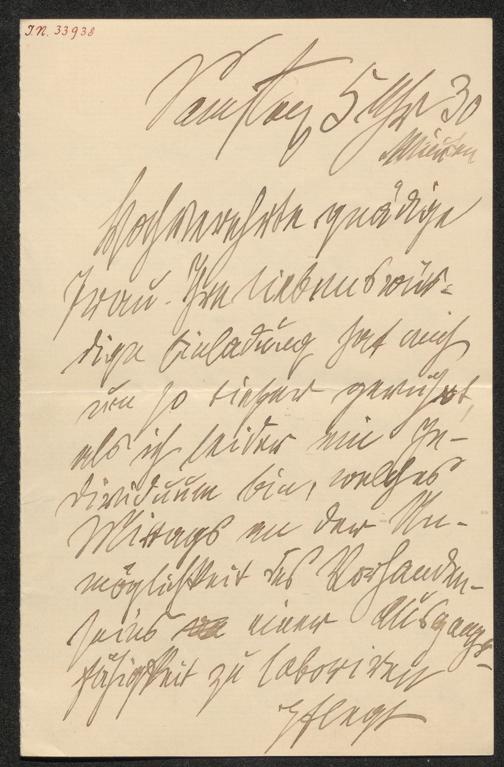 J.N. 33938
Samstag 5 Uhr 30
Minuten
Hochverehrte gnädige
Frau. Ihre liebenswür-
dige Einladung hat mich
um so tiefer gerührt,
als ich leider ein In-
dividuum bin, welches
Mittags an der Un-
möglichkeit des Vorhanden-
seins einer Ausgangs-
fähigkeit zu laboriren
pflegt